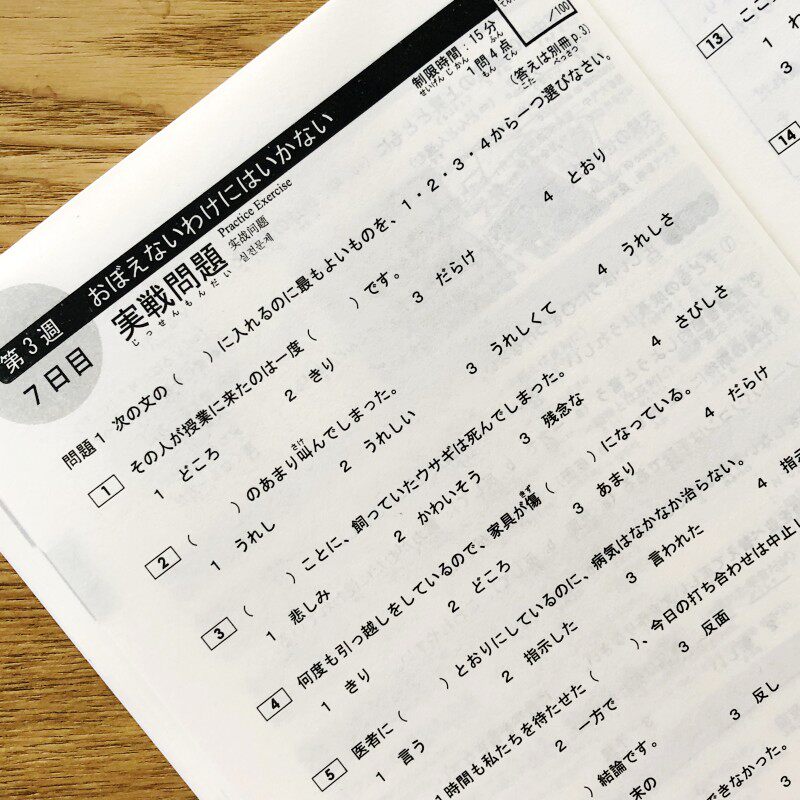 第3週 おぼえないわけにはいかない
7日目
実戦問題
じっせんもんだい
Practice Exercise
实战问题
실전문제
制限時間：15分
せいげんじかん ふん
1問4点
もん てん
/100
(答えは別冊p.3)
こた べっさつ
問題1 次の文の（ ）に入れるのに最もよいものを、1・2・3・4から一つ選びなさい。
1 その人が授業に来たのは一度（ ）です。
1 どころ 2 きり 3 だらけ 4 とおり
2 （ ）のあまり叫んでしまった。
さけ
1 うれし 2 うれしい 3 うれしくて 4 うれしさ
3 （ ）ことに、飼っていたウサギは死んでしまった。
1 悲しみ 2 かわいそう 3 残念な 4 さびしさ
4 何度も引っ越しをしているので、家具が傷（ ）になっている。
きず
1 きり 2 どころ 3 あまり 4 だらけ
5 医者に（ ）とおりにしているのに、病気はなかなか治らない。
1 言う 2 指示した 3 言われた 4 指示
1時間も私たちを待たせた（ ）、今日の打ち合わせは中止
2 一方で 3 反面
）結論です。
末の 3 反し
できなかった。
13 ここ
1 わ
3
14